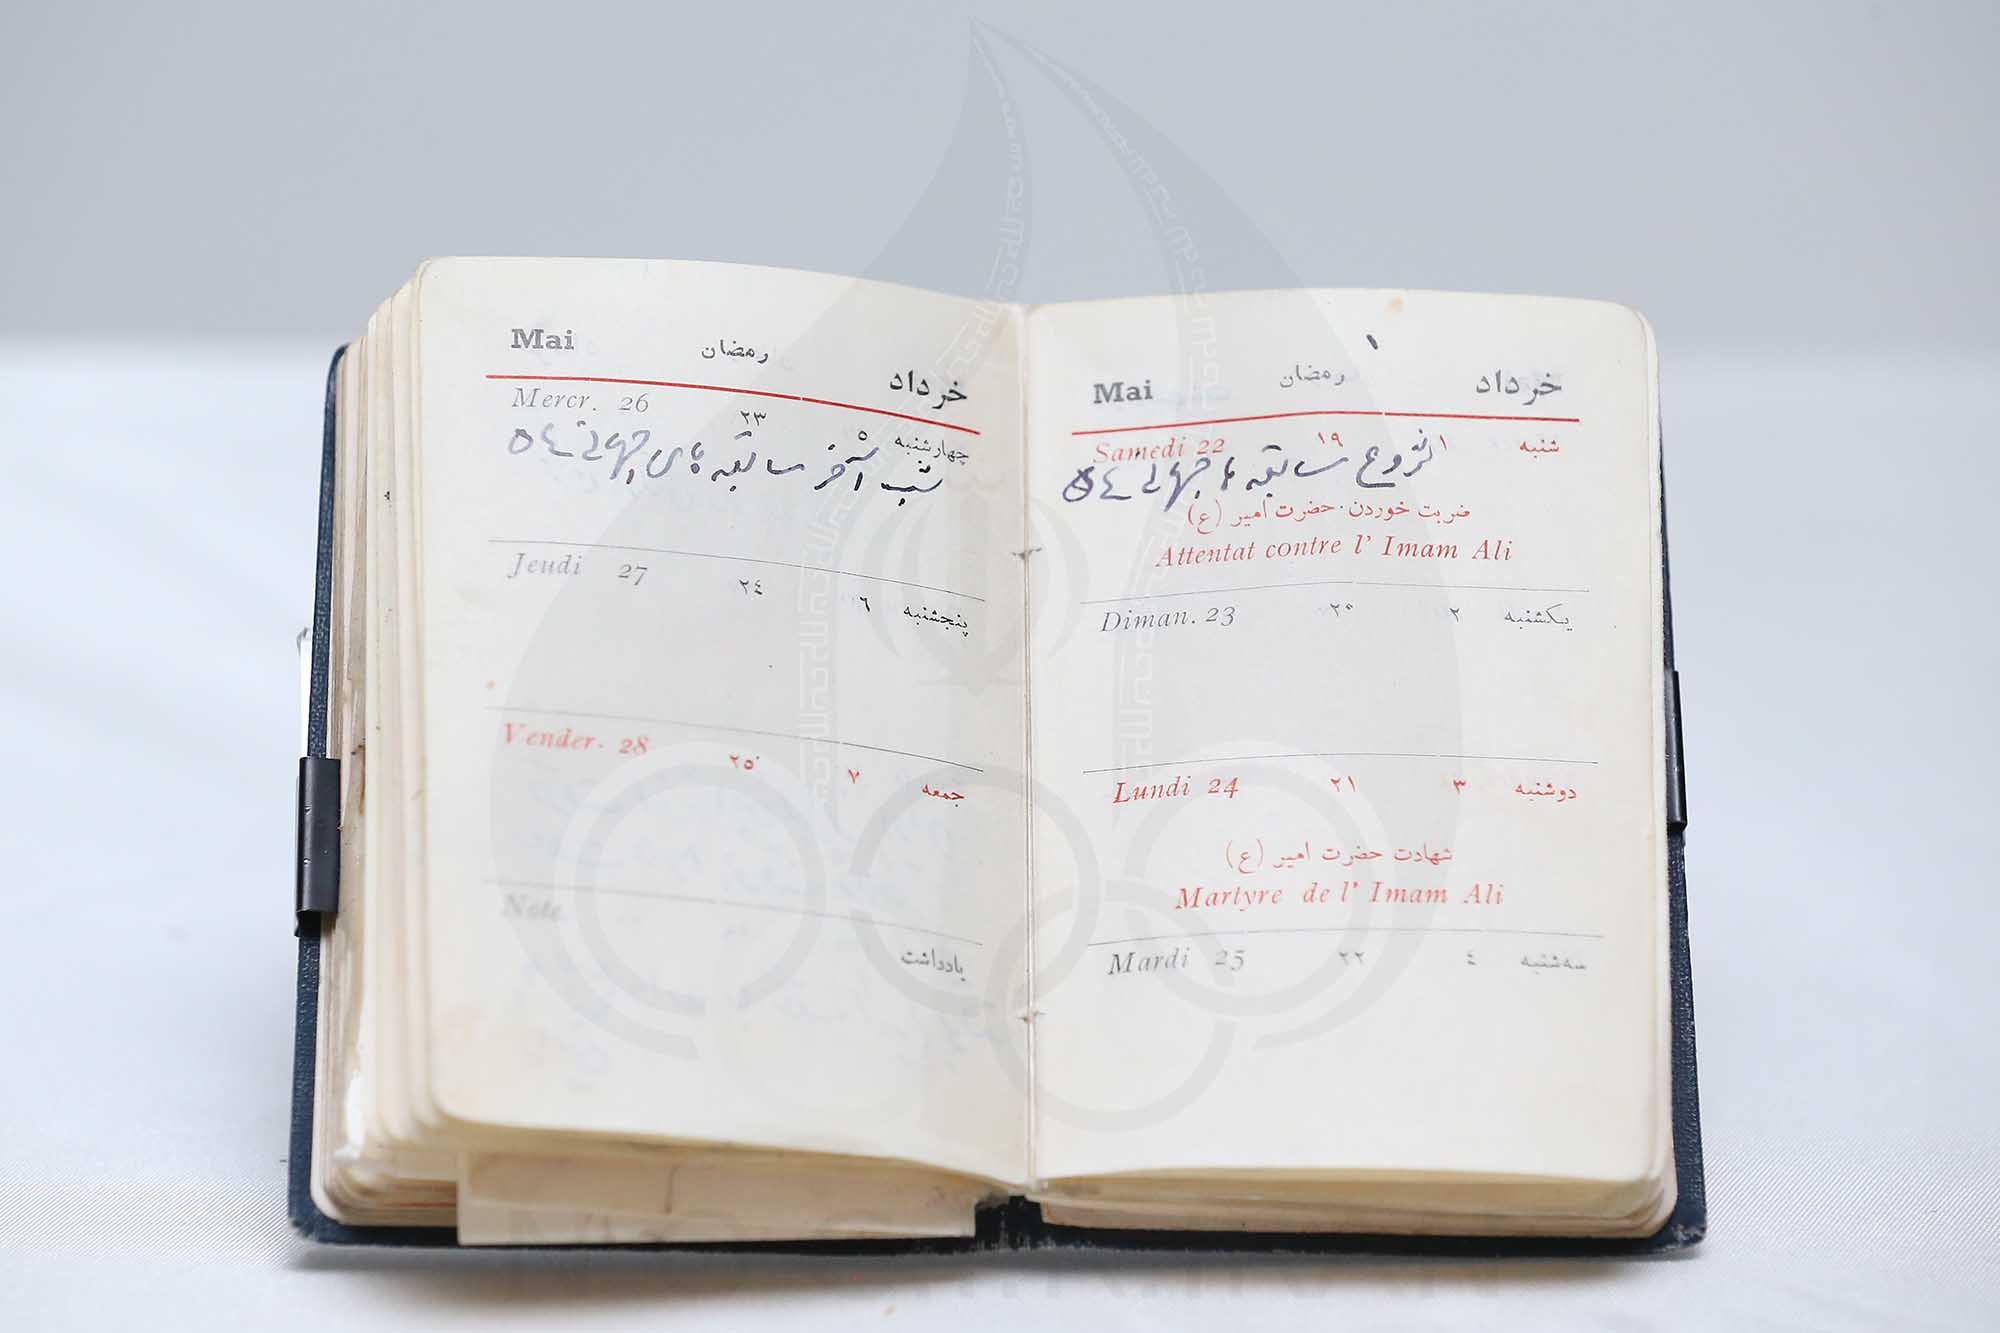 ۱
Mai رمضان خرداد
Samedi 22 ۱۹ ۱ شنبه
شروع مسابقه ها جهانی ۵۴
ضربت خوردن حضرت امیر (ع)
Attentat contre l' Imam Ali
Diman. 23 ۲۰ ۲ یکشنبه
Lundi 24 ۲۱ ۳ دوشنبه
شهادت حضرت امیر (ع)
Martyre de l' Imam Ali
Mardi 25 ۲۲ ٤ سه‌شنبه
Mai رمضان خرداد
Mercr. 26 ۲۳ ۵ چهارشنبه
شب آخر مسابقه های جهانی ۵۴
Jeudi 27 ۲٤ ٦ پنجشنبه
Vender. 28 ۲۵ ۷ جمعه
Note
یادداشت